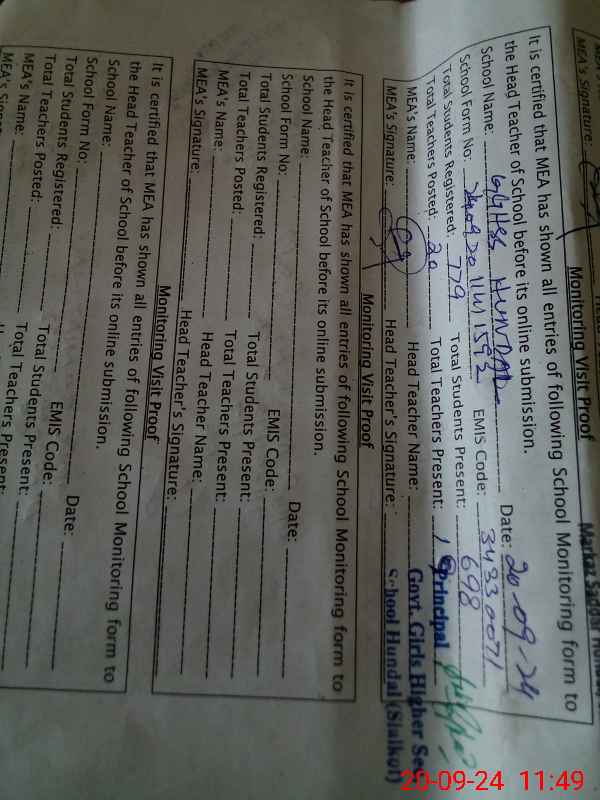 MEA's Signature:
Markaz Saddar
Monitoring Visit Proof
It is certified that MEA has shown all entries of following School Monitoring form to
the Head Teacher of School before its online submission.
Date: 20-09-24
School Name: G/GHSS HUNDAL
School Form No: EMIS Code: 34330071
Total Students Registered: 779 Total Students Present: 698
Total Teachers Posted: 20 Total Teachers Present:
MEA's Name: Head Teacher Name:
MEA's Signature: Head Teacher's Signature:
Principal
Govt. Girls Higher Sec
School Hundal (Sialkot)
Monitoring Visit Proof
It is certified that MEA has shown all entries of following School Monitoring form to
the Head Teacher of School before its online submission.
Date:
School Name:
School Form No: EMIS Code:
Total Students Registered: Total Students Present:
Total Teachers Posted: Total Teachers Present:
MEA's Name: Head Teacher Name:
MEA's Signature: Head Teacher's Signature:
Monitoring Visit Proof
It is certified that MEA has shown all entries of following School Monitoring form to
the Head Teacher of School before its online submission.
Date:
School Name:
School Form No: EMIS Code:
Total Students Registered: Total Students Present:
Total Teachers Posted: Total Teachers Present:
MEA's Name:
MEA's
20-09-24 11:49